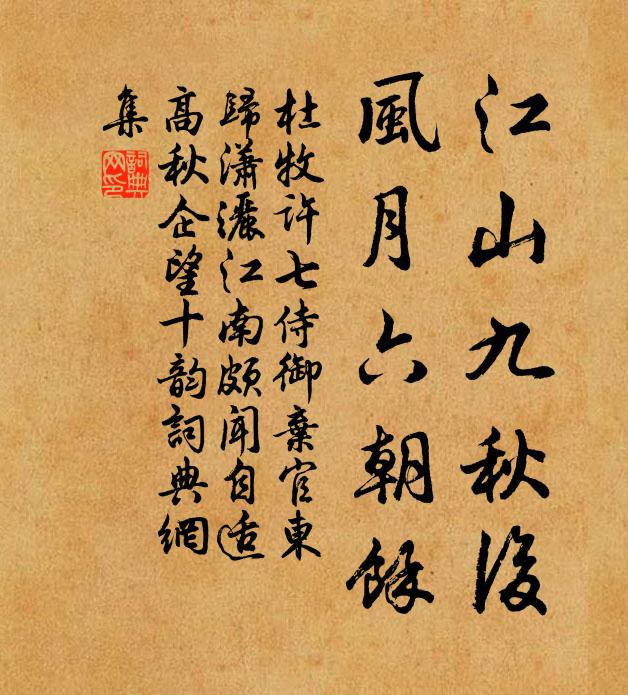 江山九秋後
風月六朝餘
杜牧許七侍御棄官東
歸瀟灑江南頗聞自适
高秋企望十韵詞典網
集
詞典
网印